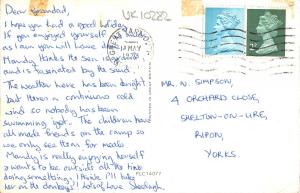 Dear Grandad,
I hope you had a good holiday.
If you enjoyed yourself as much
as I am you will have
Mandy thinks the sea is great
and is fascinated by the sand.
The weather here has been bright
but there's a continuous cold
wind so nobody has been
swimming yet. The children have
all made friends on the camp so
we only see them for meals.
Mandy's really enjoying herself
& wants to be outside all the time
doing something. I think I'll
her on the donkeys! Lots of love
UK10282
MAY
1978
MR. N. SIMPSON,
4 ORCHARD CLOSE,
SKELTON-ON-URE,
RIPON,
YORKS.
FLC14077